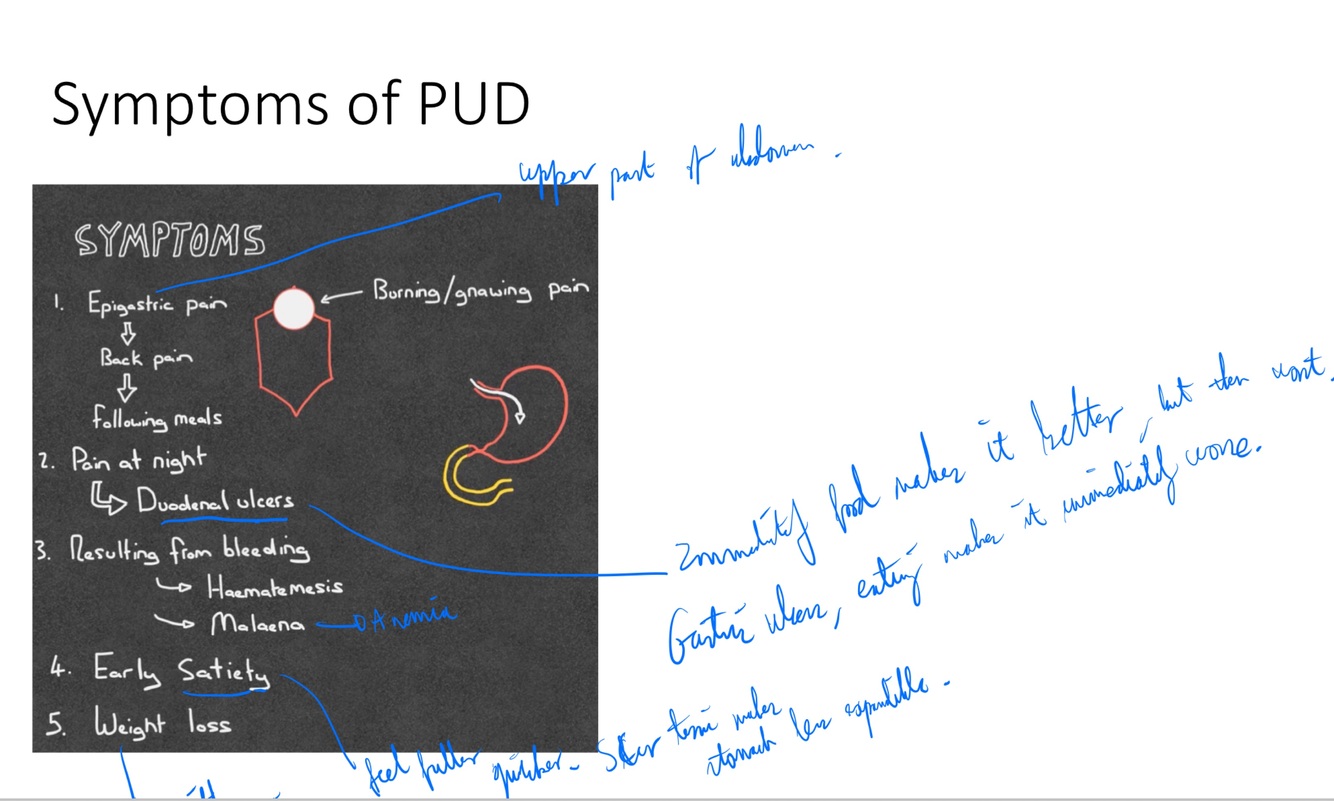 Symptoms of PUD
upper part of abdomen.
SYMPTOMS
1. Epigastric pain
Burning/gnawing pain
Back pain
Following meals
2. Pain at night
Duodenal ulcers
Immediately food makes it better, but then worst.
Gastric ulcers, eating makes it immediately worse.
3. Resulting from bleeding
Haematemesis
Malaena
Anemia
4. Early Satiety
5. Weight loss
feel fuller quicker. Scar makes
stomach less expandible.